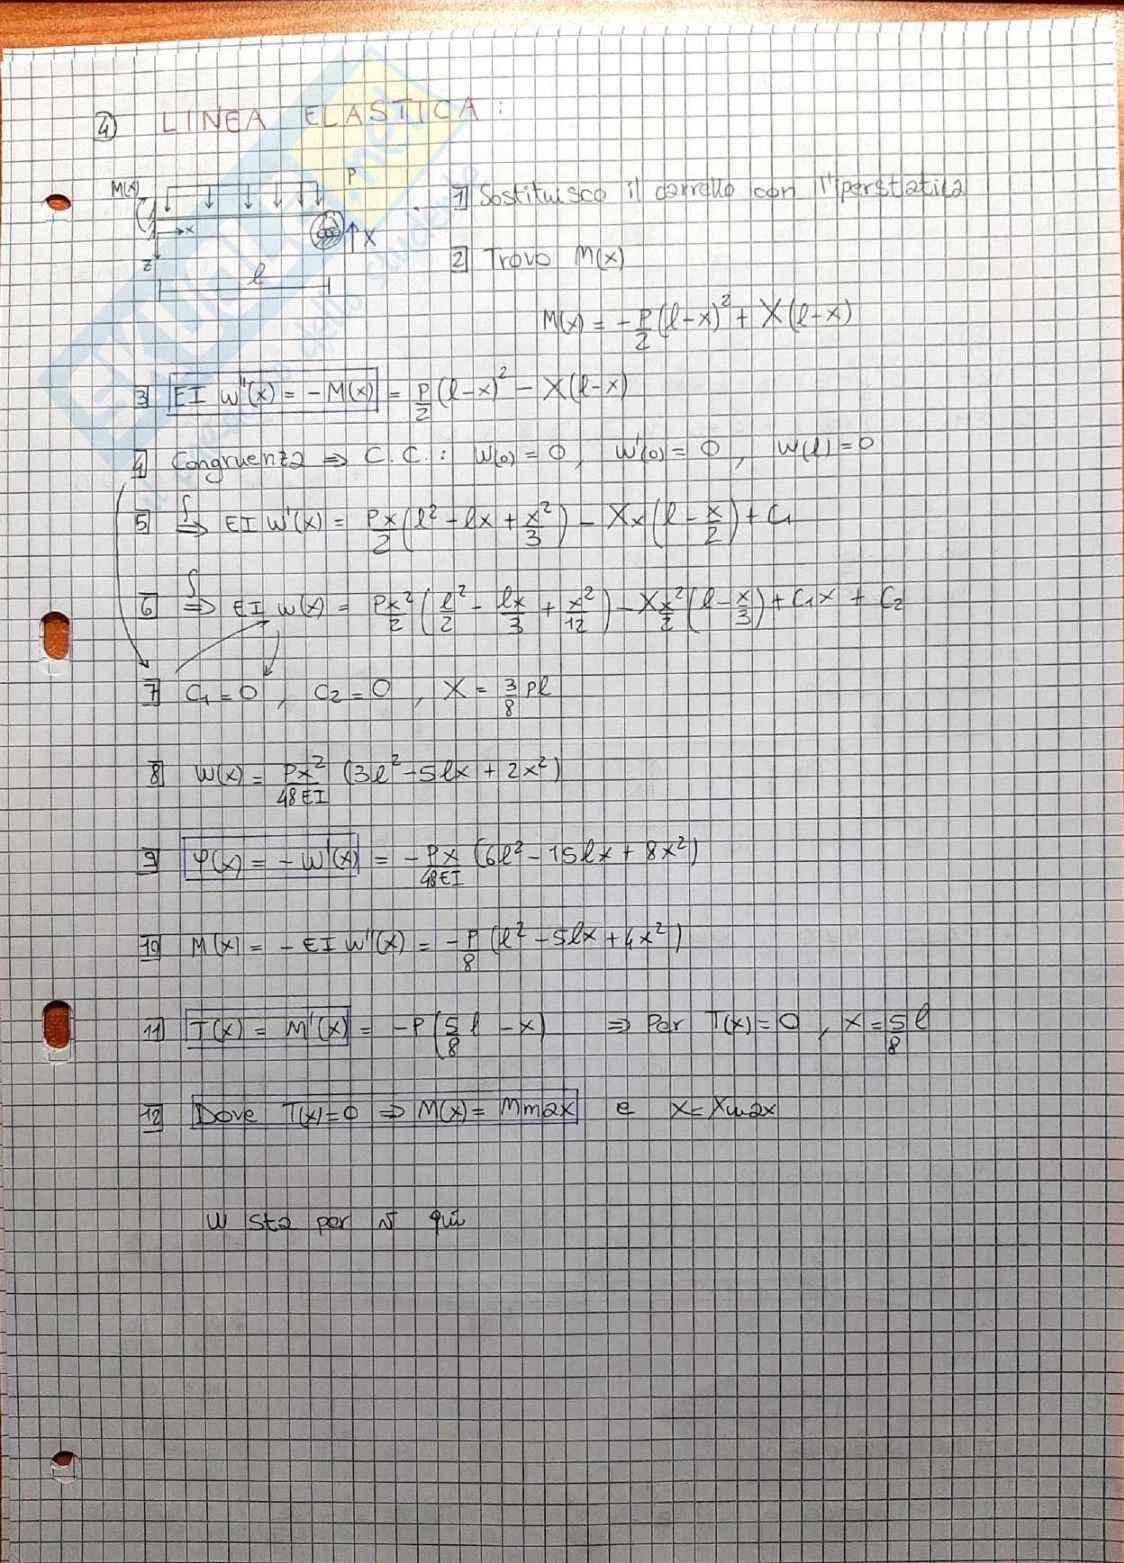 4) LINEA ELASTICA:
M(x) P
1 Sostituisco il carrello con l'iperstatica
x X
z
l
2 Trovo M(x)
M(x) = -P/2 (l-x)² + X(l-x)
3 EI w''(x) = -M(x) = P/2 (l-x)² - X(l-x)
4 Congruenza ⇒ C.C.: w(0) = 0, w'(0) = 0, w(l) = 0
5 ∫⇒ EI w'(x) = Px/2 (l² - lx + x²/3) - Xx (l - x/2) + C₁
6 ∫⇒ EI w(x) = Px²/2 (l²/2 - lx/3 + x²/12) - Xx²/2 (l - x/3) + C₁x + C₂
7 C₁ = 0, C₂ = 0, X = 3/8 Pl
8 w(x) = Px²/48EI (3l² - 5lx + 2x²)
9 φ(x) = -w'(x) = -Px/48EI (6l² - 15lx + 8x²)
10 M(x) = -EI w''(x) = -P/8 (l² - 5lx + 4x²)
11 T(x) = M'(x) = -P(5/8 l - x) ⇒ Per T(x) = 0, x = 5/8 l
12 Dove T(x)=0 ⇒ M(x) = Mmax e x = xmax
w sta per v qui